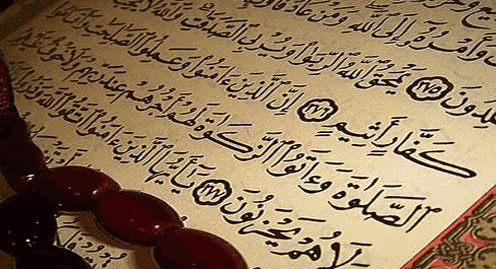 وَأَمْرُهُۥٓ إِلَى ٱللَّهِ وَمَنْ عَادَ
لِدُونَ ٢٧٥ يَمْحَقُ ٱللَّهُ ٱلرِّبَوٰا۟ وَيُرْبِى ٱلصَّدَقَٰتِ وَٱللَّهُ لَا يُحِبُّ
كَفَّارٍ أَثِيمٍ ٢٧٦ إِنَّ ٱلَّذِينَ ءَامَنُوا۟ وَعَمِلُوا۟ ٱلصَّٰلِحَٰتِ وَأَقَامُوا۟
ٱلصَّلَوٰةَ وَءَاتَوُا۟ ٱلزَّكَوٰةَ لَهُمْ أَجْرُهُمْ عِندَ رَبِّهِمْ وَلَا خَوْفٌ عَلَيْهِمْ
وَلَا هُمْ يَحْزَنُونَ ٢٧٧ يَٰٓأَيُّهَا ٱلَّذِينَ ءَامَنُوا۟ ٱتَّقُوا۟ ٱللَّهَ وَذَرُوا۟